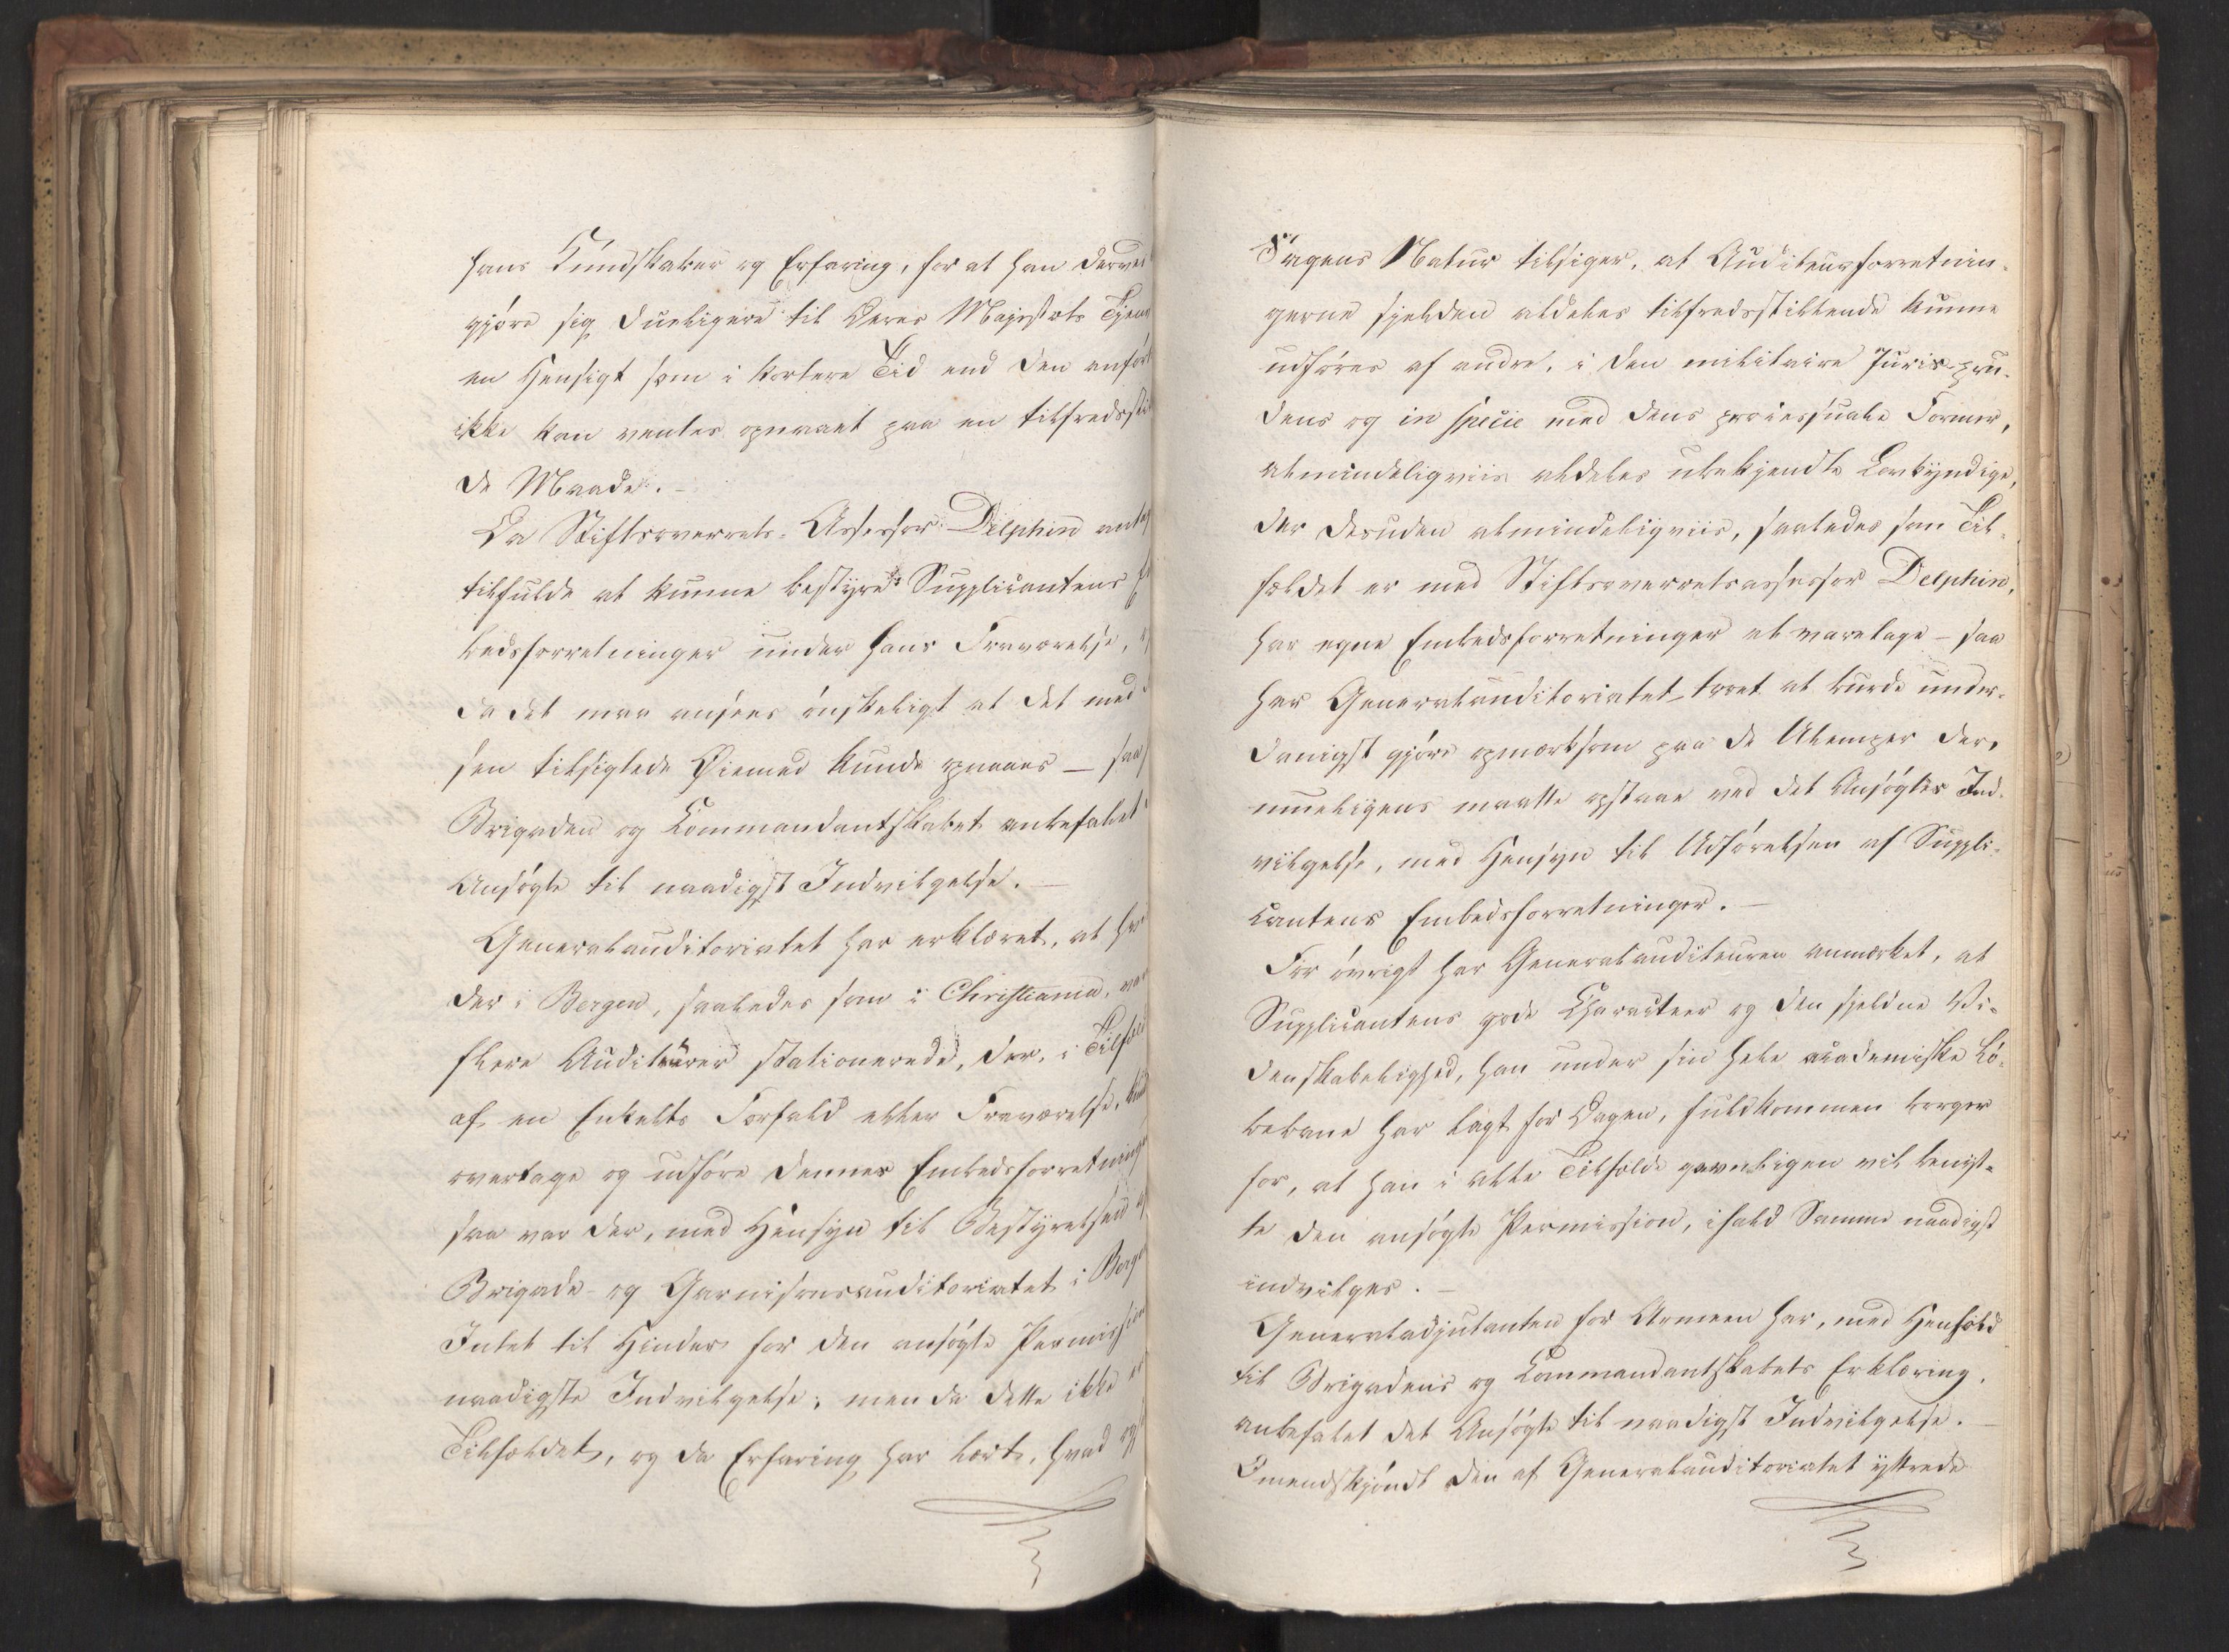 hans Kundskaber og Erfaring, for at han derved
gjøre sig dueligere til Deres Majestæts Tjene
en Hensigt som i kortere Tid end den anfør
ikke kan ventes opnaaet paa en tilfredssti
de Maade. –
Da Stiftsoverrets-Assessor Delphin antag
tilfulde at kunne bestyre Supplicantens E
bedsforretninger under hans Fraværelse, o
da det maa ansees ønskeligt at det med
sen tilsigtede Øiemed kunde opnaaes – saa
Brigaden og Commandantskabet anbefalet
Ansøgte til naadigst Indvilgelse. –
Generalauditoriatet har erklæret, at hv
der i Bergen, saaledes som i Christiania, var
flere Auditører stationerede, der, i Tilfæl
af en Enkelts Forfald eller Fraværelse, kun
overtage og udføre dennes Embedsforretning
saa var der, med Hensyn til Bestyrelsen af
Brigade- og Garnisonsauditoriatet i Berge
Intet til Hinder for den ansøgte Permission
naadigste Indvilgelse; men da dette ikke er
Tilfældet, og da Erfaring har lært, hvad og
Sagens Natur tilsiger, at Auditeurforretnin-
gerne sjelden aldeles tilfredsstillende kunne
udføres af andre, i den militaire Jurispru-
dens og in specie med dens processuale Former,
almindeligviis aldeles ubekjendte Lovkyndige,
der desuden almindeligviis, saaledes som Til-
fældet er med Stiftsoverretsassessor Delphin,
har egne Embedsforretninger at varetage – saa
har Generalauditoriatet troet at burde under-
danigst gjøre opmærksom paa de Ulemper der
mueligens maatte opstaae ved det Ansøgtes Ind-
vilgelse, med Hensyn til Udførelsen af Suppli-
cantens Embedsforretninger. –
For øvrigt har Generalauditeuren anmærket, at
Supplicantens gode Characteer og den sjeldne Vi-
denskabelighed, han under sin hele academiske Lø-
bebane har lagt for Dagen, fuldkommen borger
for, at han i alle Tilfælde gavnligen vil benyt-
te den ansøgte Permission, ifald Samme naadigst
indvilges. –
Generaladjutanten for Armeen har, med Henhold
til Brigadens og Commandantskabets Erklæring,
anbefalet det Ansøgte til naadigst Indvilgelse. –
Omendskjøndt den af Generalauditoriatet yttrede